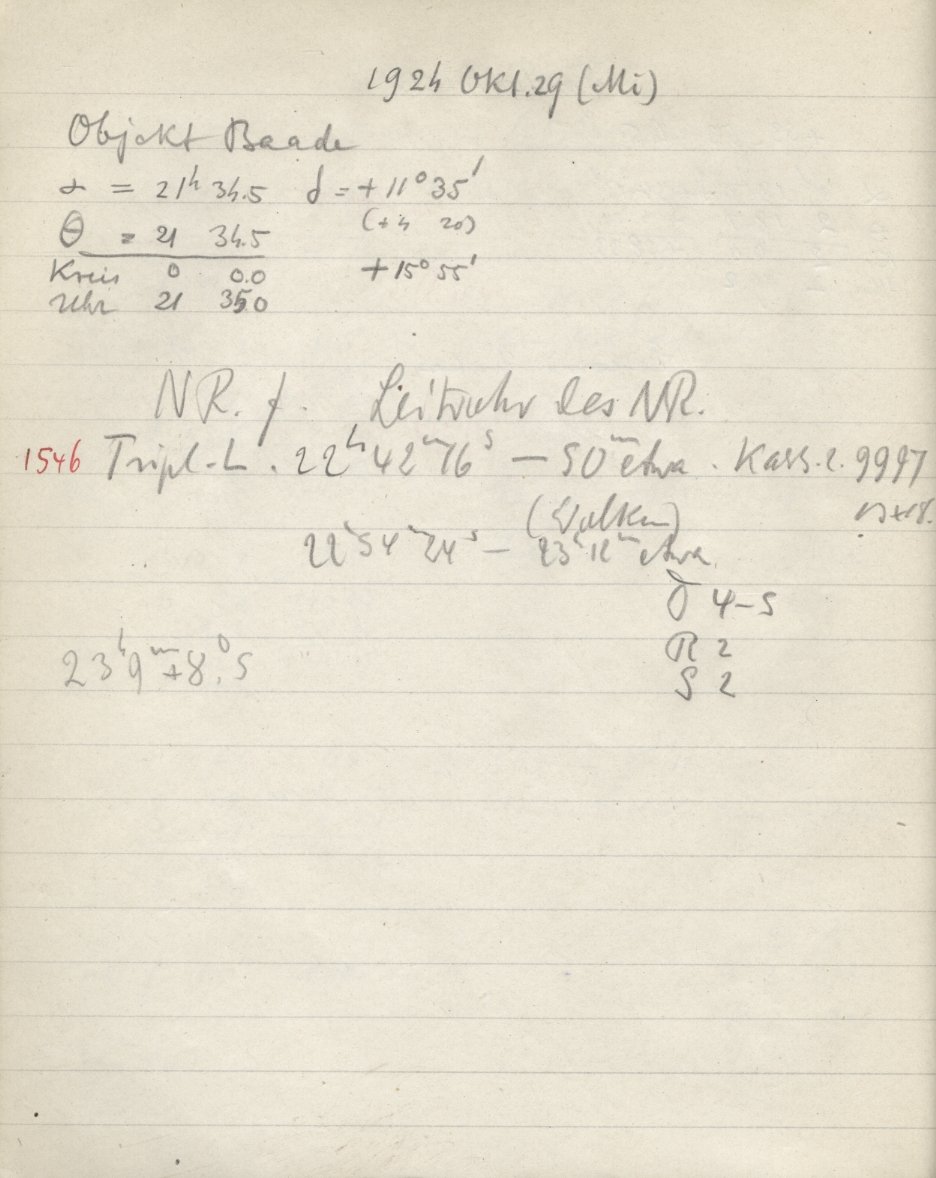 1924 Okt. 29 (Mi)
Objekt Baade
α = 21ʰ 34.5 δ = +11° 35′
(+4 20)
θ = 21 34.5
Kreis 0 0.0 +15° 55′
Uhr 21 35.0
NR. f. Leituhr des NR.
1546 Tripl.-L. 22ʰ 42ᵐ 16ˢ – 50ᵐ etwa. Kass. 2. 9997
(Wolken)
22ʰ 54ᵐ 24ˢ – 23ʰ 12ᵐ etwa.
D 4–5
R 2
S 2
23ʰ 9ᵐ +8.°5